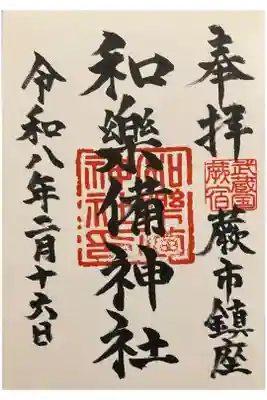 奉拝
武蔵国
蕨宿
蕨市鎮座
和樂備神社
和樂備
神社印
令和八年二月十六日